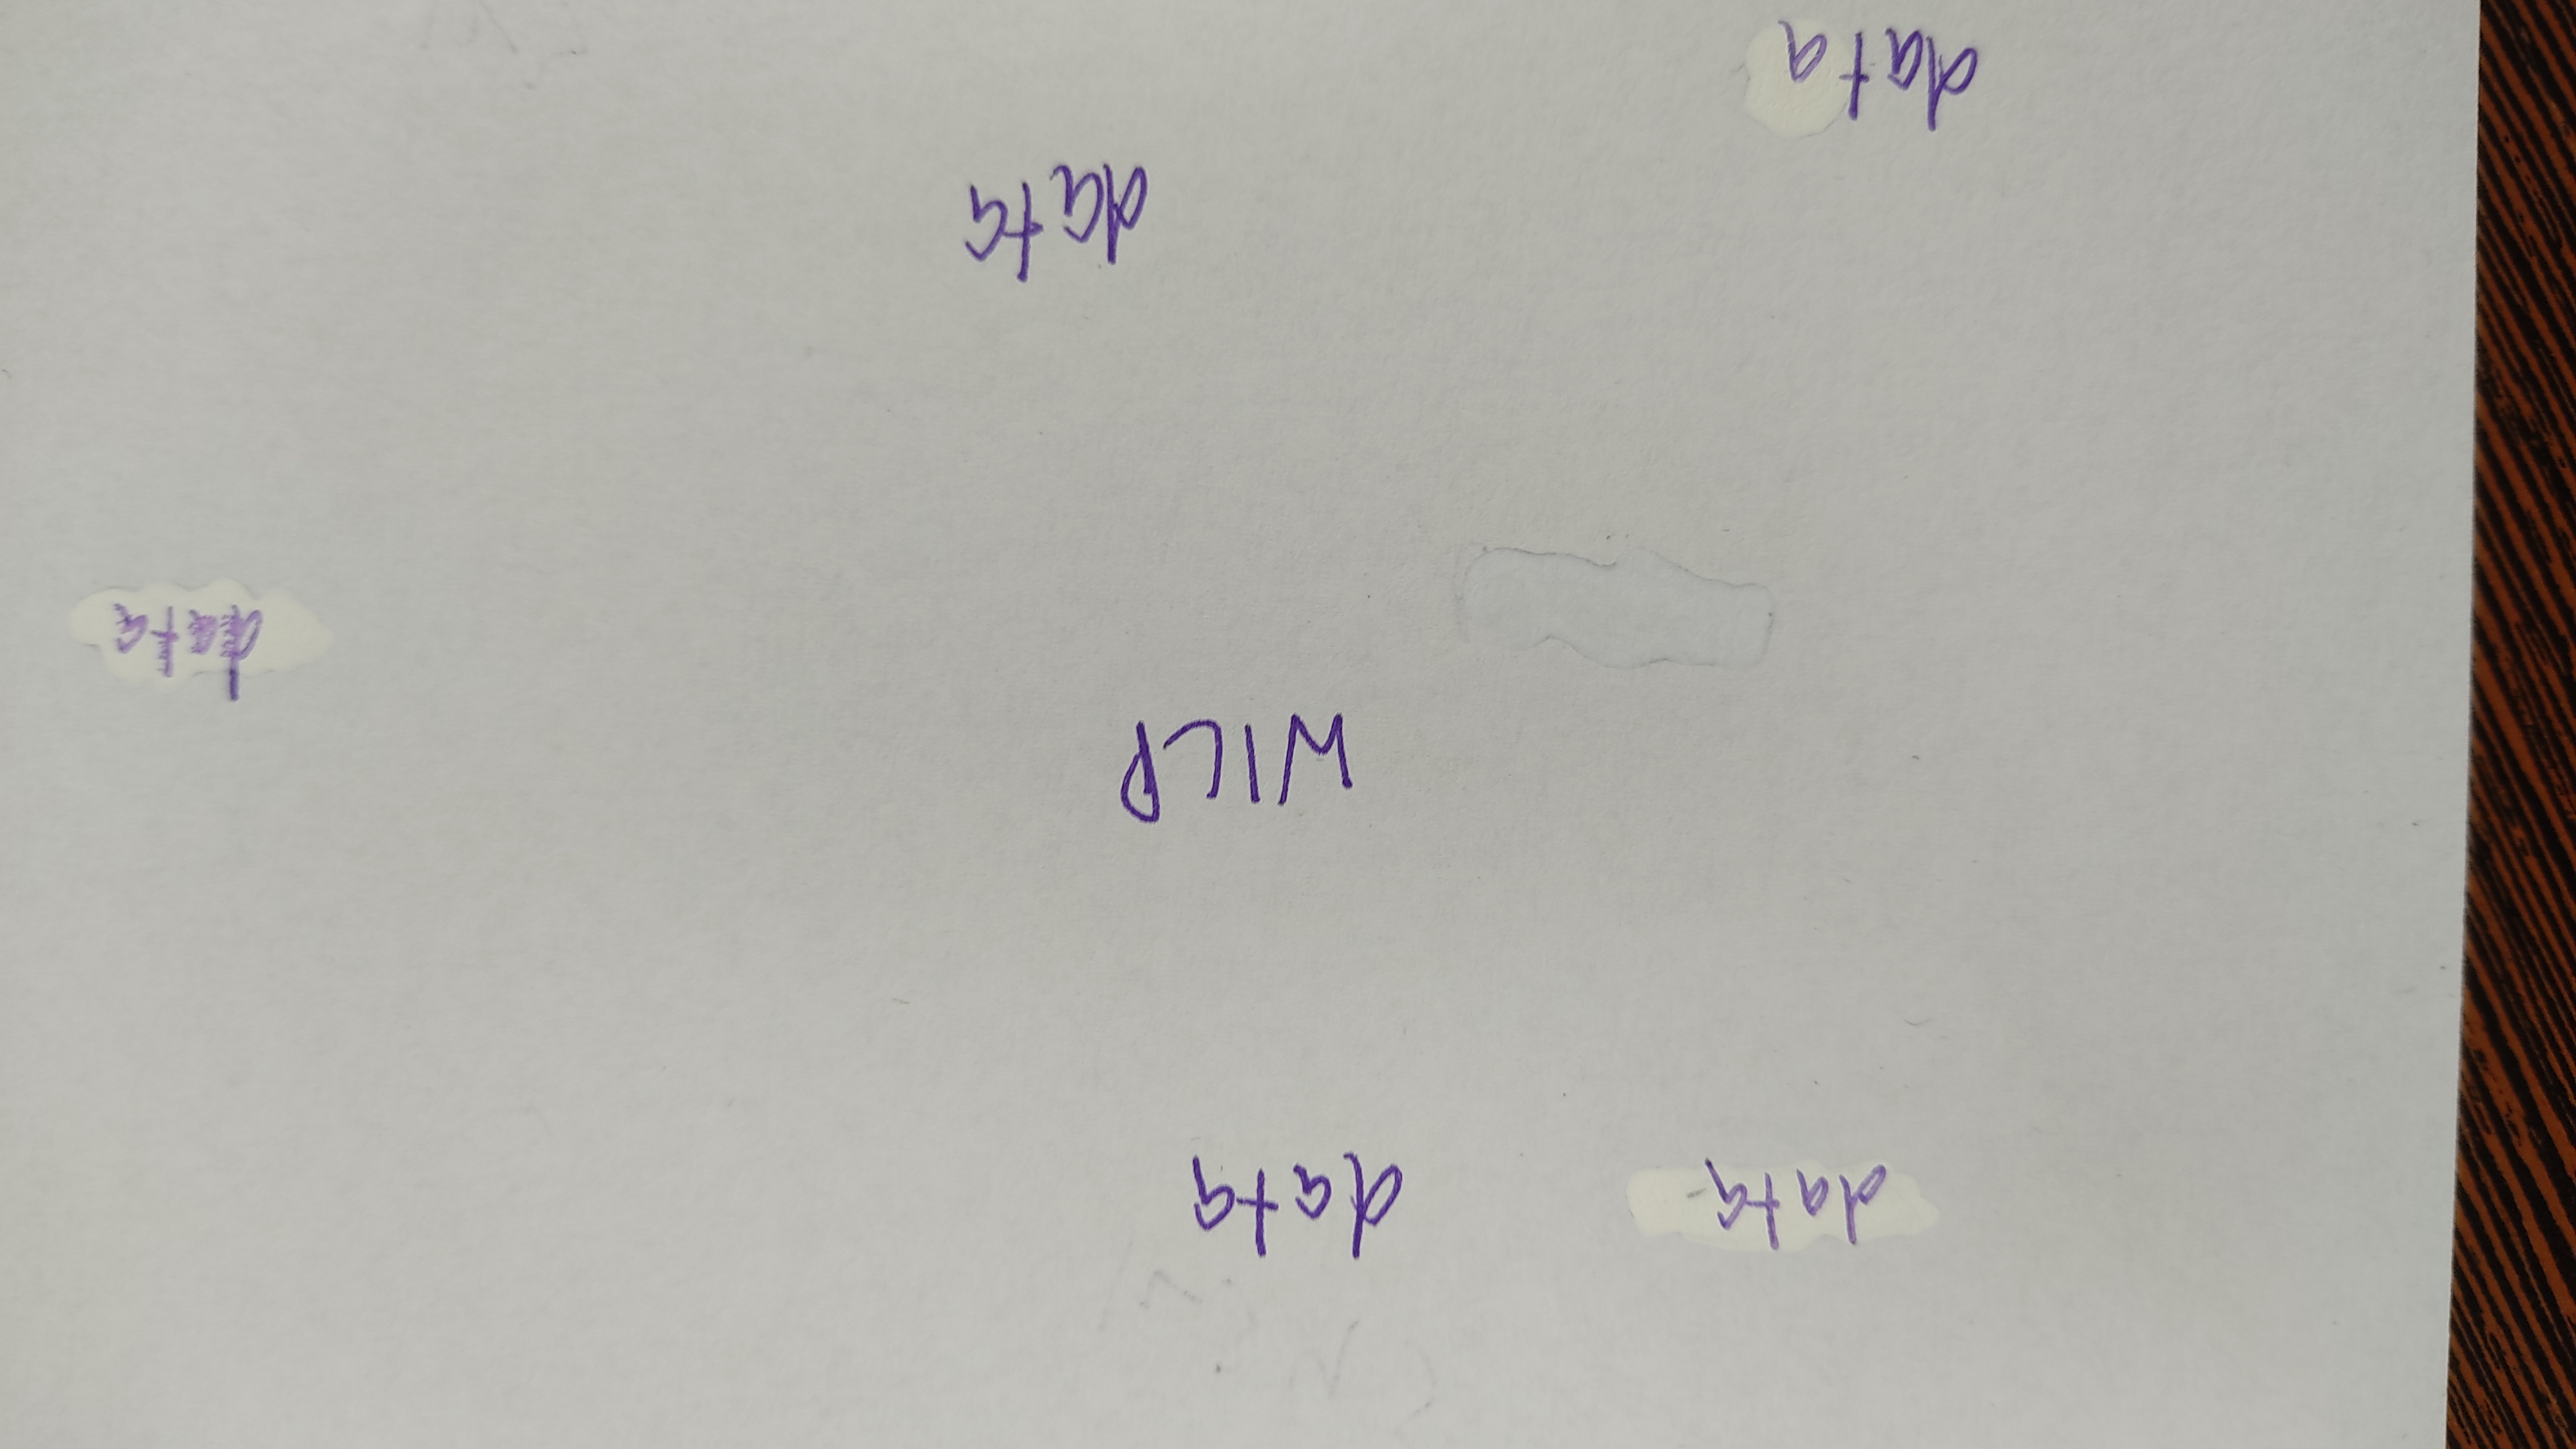 data data
data
data
data